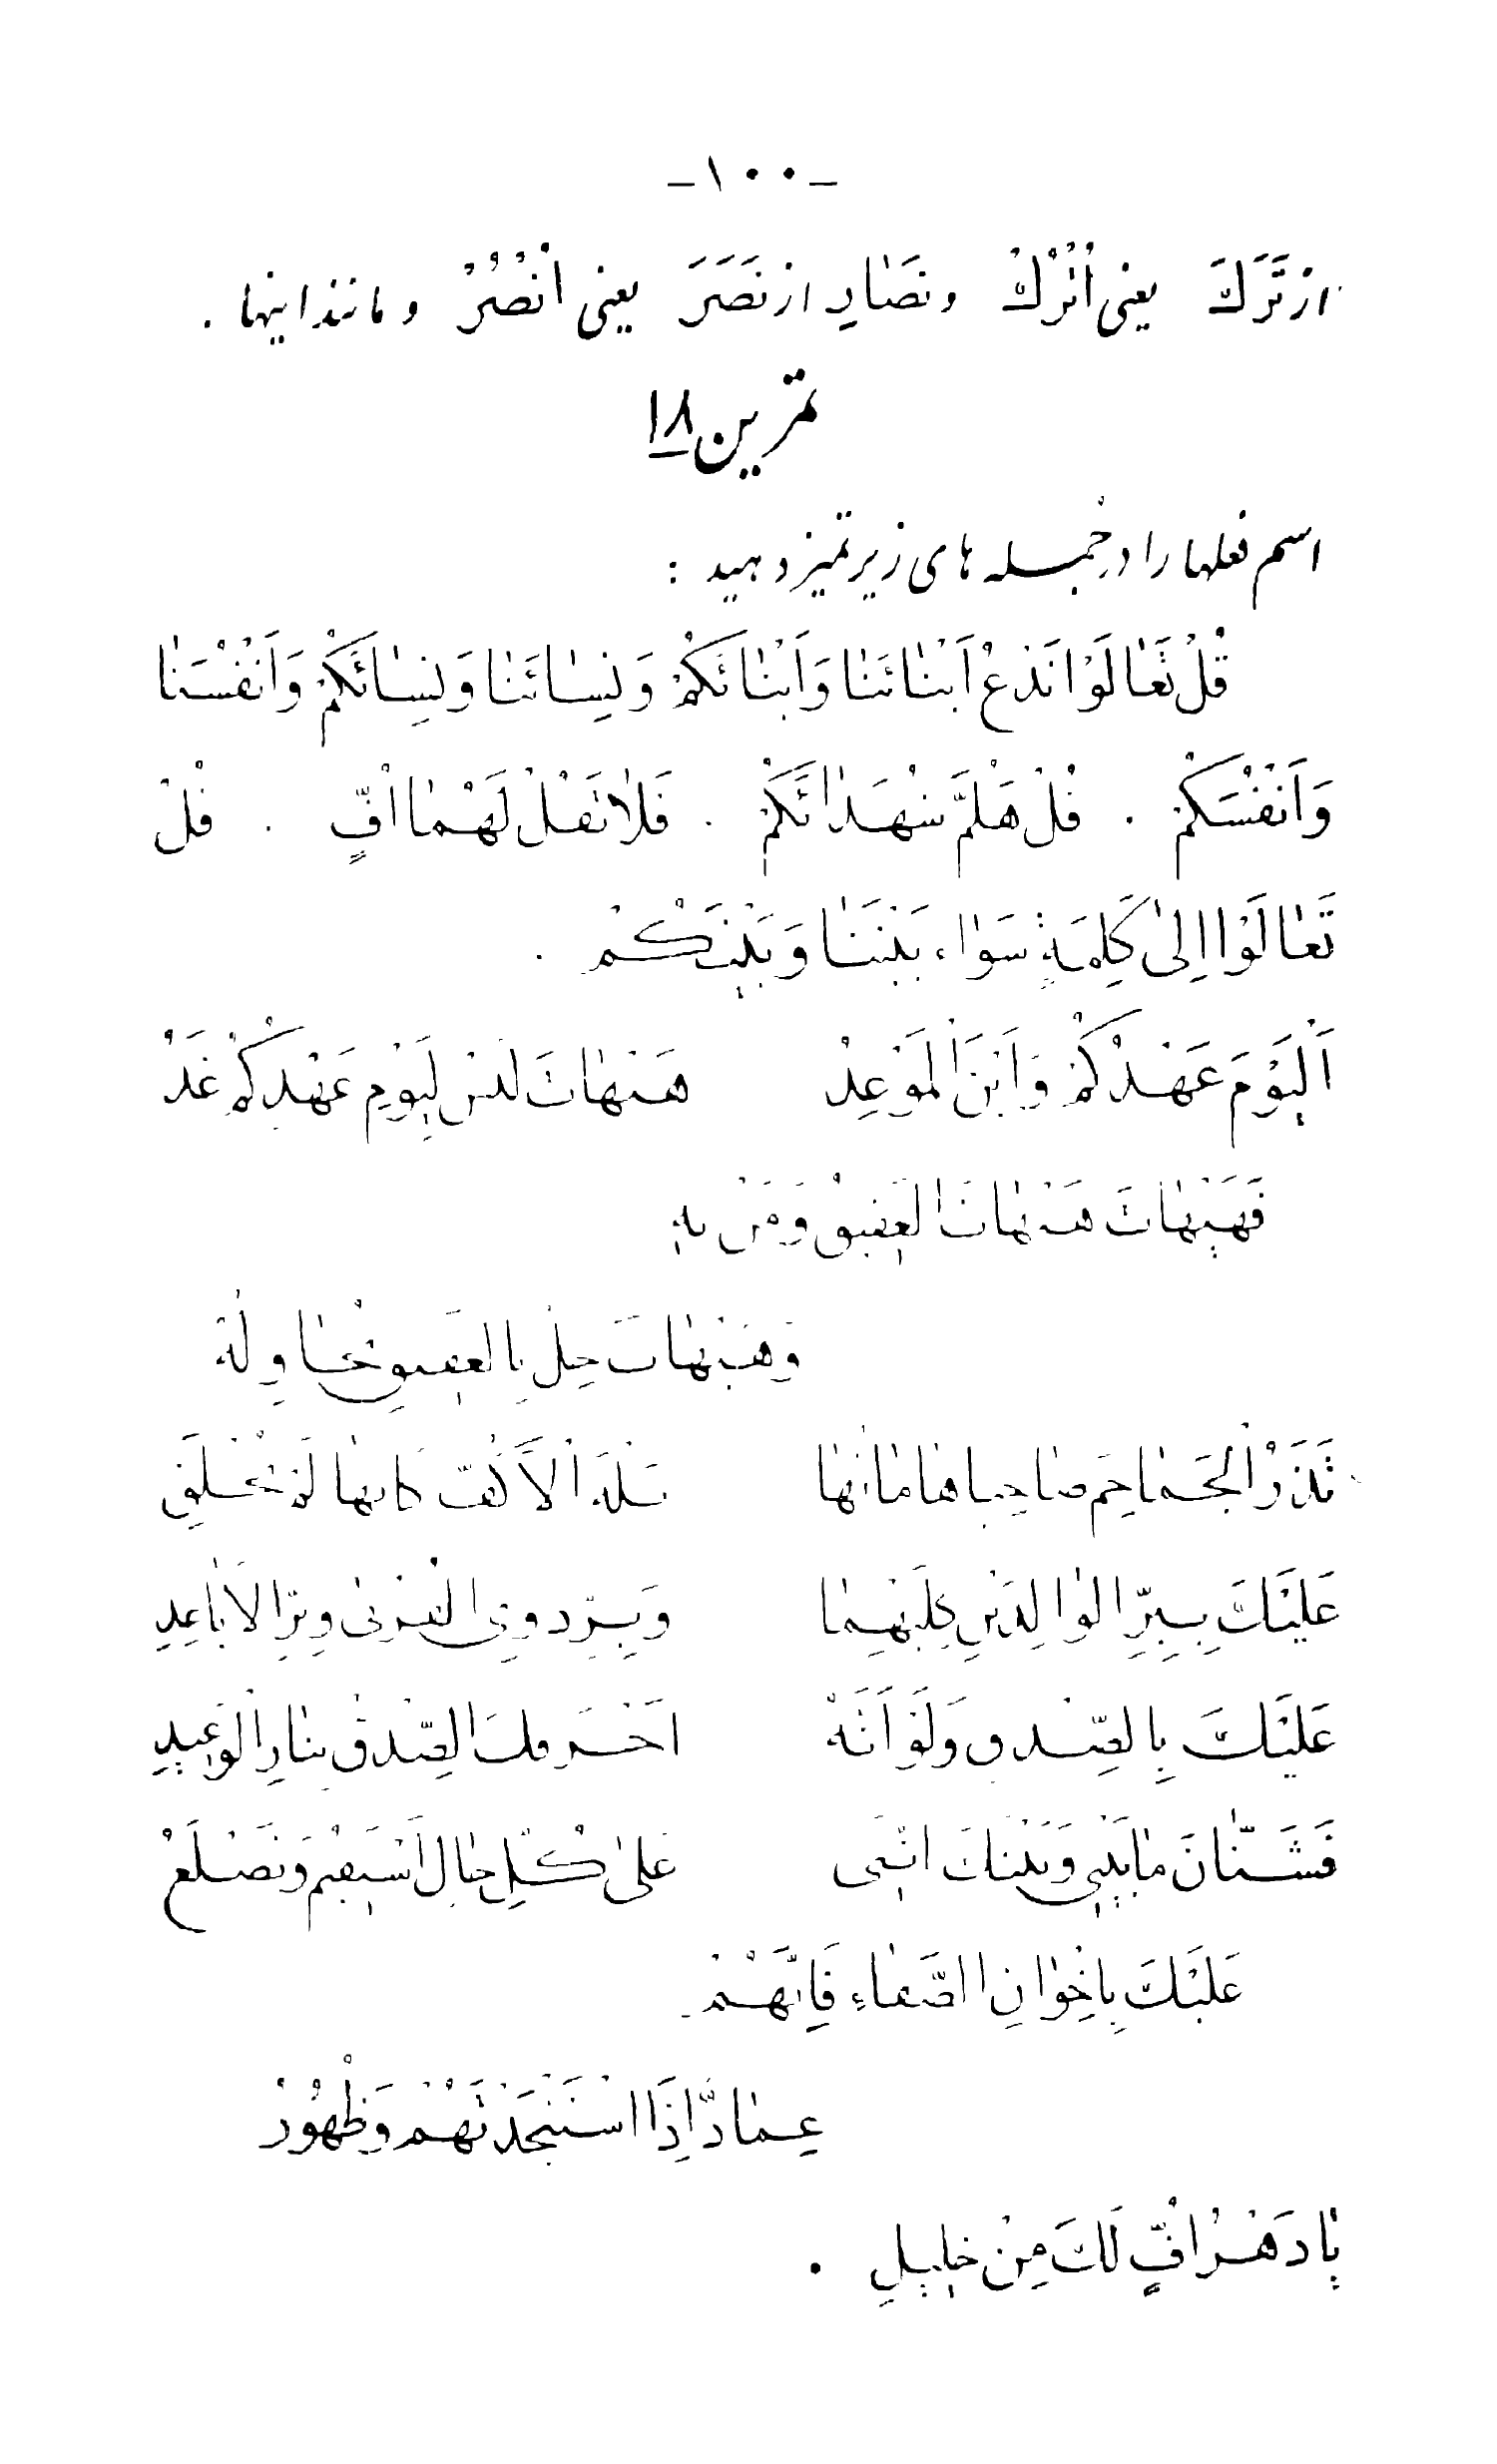 -١٠٠-
از تَرَكَ يعنى اُتْرُكْ و نَصَارِ از نَصَرَ يعنى اُنْصُرْ و مانند اينها .
تمرين ١٨
اسم فعلها را در جمله هاى زير تميز دهيد :
قُلْ تَعٰالَوْا نَدْعُ اَبْنٰائَنٰا وَ اَبْنٰائَكُمْ وَ نِسٰائَنٰا وَ نِسٰائَكُمْ وَ اَنْفُسَنٰا
وَ اَنْفُسَكُمْ . قُلْ هَلُمَّ شُهَدٰائَكُمْ . فَلاٰ تَقُلْ لَهُمٰا اُفٍّ . قُلْ
تَعٰالَوْا اِلىٰ كَلِمَةٍ سَوٰاء بَيْنَنٰا وَ بَيْنَكُمْ .
اَلْيَوْمَ عَهْدُكُمْ وَ اَيْنَ الْمَوْعِدُ هَيْهٰاتَ لَيْسَ لِيَوْمِ عَهْدِكُمْ غَدُ
فَهَيْهٰاتَ هَيْهٰاتَ الْعَقيقُ وَ مَنْ بِهِ
وَ هَيْهٰاتَ خِلٌّ بِالْعَقيقِ نُحٰاوِلُهْ
تَذَرُ الْجَمٰاجِمَ ضٰاحِياً هٰامٰاتُهٰا بَلْهَ الْاَكُفَّ كَاَنَّهٰا لَمْ تُخْلَقِ
عَلَيْكَ بِبِرِّ الْوٰالِدَيْنِ كِلَيْهِمٰا وَ بِرِّ ذَوِى الْقُرْبىٰ وَ بِرِّ الْاَبٰاعِدِ
عَلَيْكَ بِالصِّدْقِ وَ لَوْ اَنَّهُ اَحْرَقَكَ الصِّدْقُ بِنٰارِ الْوَعيدِ
فَشَتّٰانَ مٰا بَيْنى وَ بَيْنَكَ اِنَّنى عَلىٰ كُلِّ حٰالٍ اَسْتَقيمُ وَ تَضْلَعُ
عَلَيْكَ بِاِخْوٰانِ الصَّفٰاءِ فَاِنَّهُمْ
عِمٰادٌ اِذَا اسْتَنْجَدْتَهُمْ وَ ظُهُورُ
يٰا دَهْرُ اُفٍّ لَكَ مِنْ خَليلٍ .